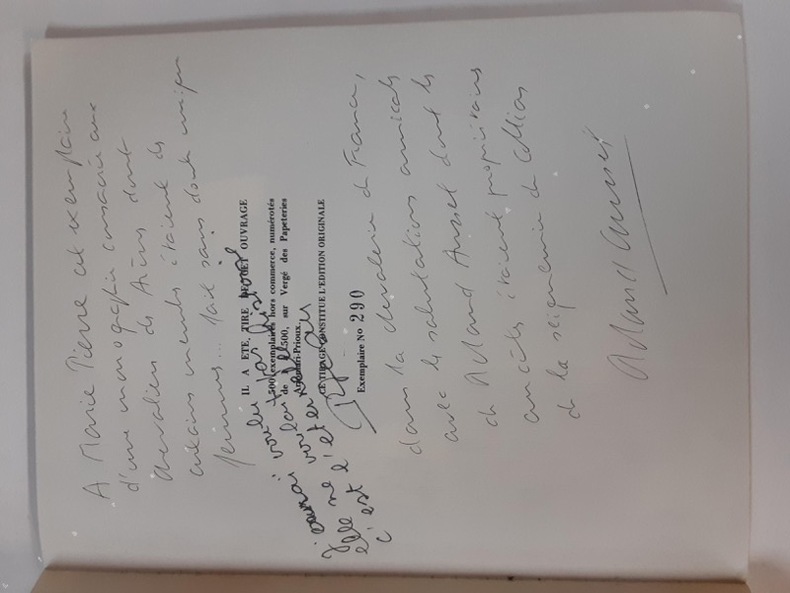 A Marie Pierre cet exemplaire
d'une monographie consacrée aux
chevaliers de dont
certains membres étaient des
femmes... fait sans doute unique
IL A ETE TIRE DE CET OUVRAGE
500 exemplaires hors commerce, numérotés
de à 500, sur Vergé des Papeteries
Prioux.
CE TIRAGE CONSTITUE L'EDITION ORIGINALE
Exemplaire No 290
J'aurai voulu
elle ne
elle
c'est
dans la chevalerie de France,
avec les salutations amicales
de Roland Ausset dont les
ancêtres étaient propriétaires
de la seigneurie de Collias
Roland Ausset